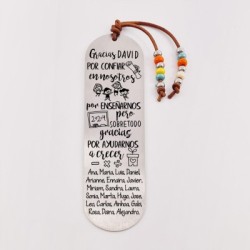 Gracias DAVID
POR CONFIAR
en nosotros
por ENSEÑARNOS
pero
SOBRETODO
gracias
POR AYUDARNOS
a crecer
Ana, Maria, Luis, Daniel,
Arianne, Ennaira, Javier,
Miriam, Sandra, Laura,
Sonia, Marta, Hugo, Jose,
Lea, Carlos, Ainhoa, Gala,
Rosa, Daira, Alejandra,